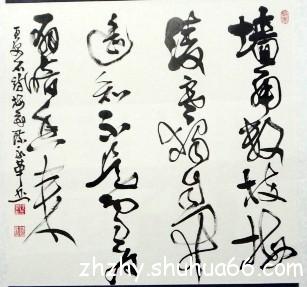 墙角数枝梅
凌寒独自开
遥知不是雪为
有暗香来
王安石诗梅花
zhzhy.shuhua66.com